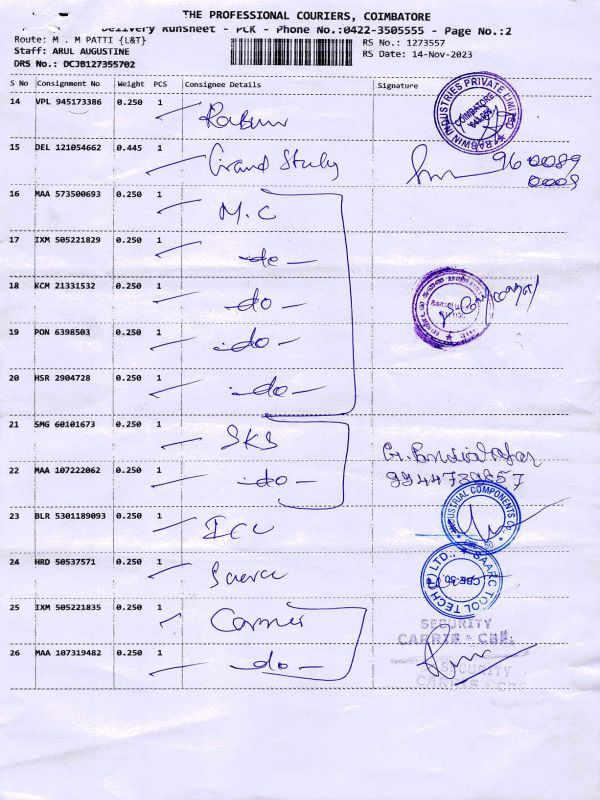 THE PROFESSIONAL COURIERS, COIMBATORE
Delivery Runsheet - PLK - Phone No.:0422-3505555 - Page No.:2
Route: M . M PATTI {L&T}
RS No.: 1273557
Staff: ARUL AUGUSTINE
RS Date: 14-Nov-2023
DRS No.: DCJB127355702
S No Consignment No Weight PCS Consignee Details Signature
14 VPL 945173386 0.250 1
RABWIN INDUSTRIES PRIVATE LIMITED
COIMBATORE
15 DEL 121054662 0.445 1 Grand 960089
0009
16 MAA 573500693 0.250 1 M.C
17 IXM 505221829 0.250 1 -do-
18 KCM 21331532 0.250 1 -do-
19 PON 6398503 0.250 1 -do-
20 HSR 2904728 0.250 1 -do-
21 SMG 60101673 0.250 1 SKS
22 MAA 107222062 0.250 1 -do- 9944739857
23 BLR 5301189093 0.250 1 ICC
INDUSTRIAL COMPONENTS CO
24 HRD 50537571 0.250 1
SAARC TOOL TECH (I) LTD.,
CBE-30.
25 IXM 505221835 0.250 1
SECURITY
CARRIE - CBE.
26 MAA 107319482 0.250 1 -do-
SECURITY